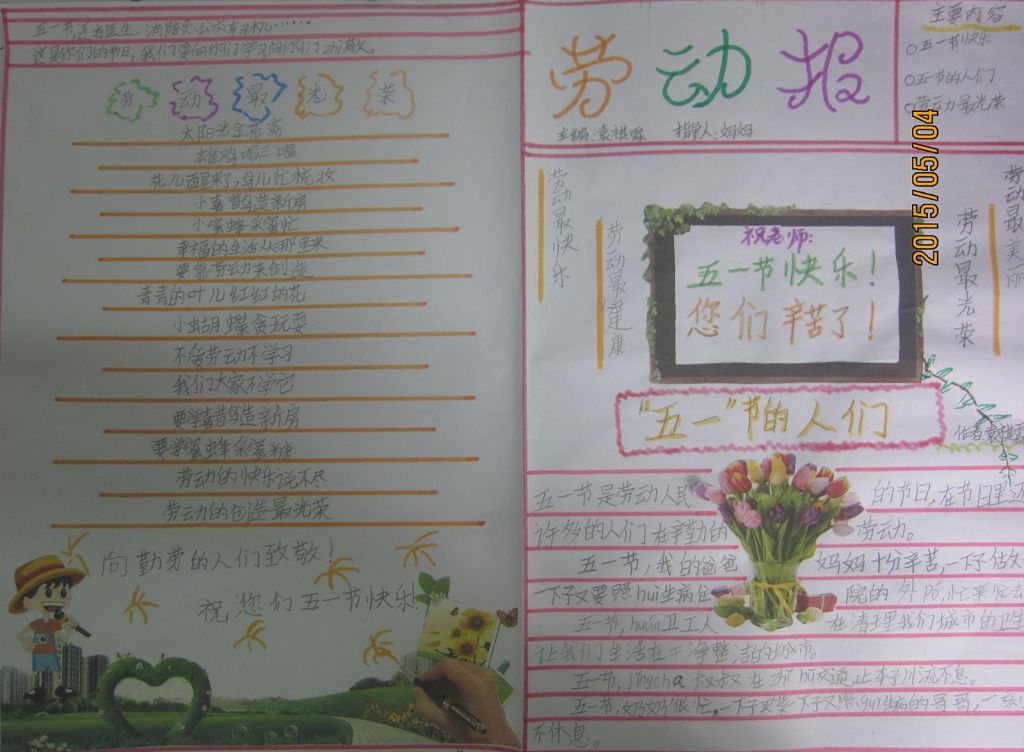 五一节还有医生、消防员公交司机……
这是你们的节日,我们要向你们学习向你们zhi敬。
劳动最光荣
太阳光金亮亮
雄鸡唱三唱
花儿醒来了,鸟儿忙梳妆
小喜鹊造新房
小蜜蜂采蜜忙
幸福的生活从哪里来
要靠劳动来创造
青青的叶儿红红的花
小蝴蝶贪玩耍
不爱劳动不学习
我们大家不学它
要学喜鹊造新房
要学蜜蜂采蜜糖
劳动的快乐说不尽
劳动的创造最光荣
向勤劳的人们致敬!
祝您们五一节快乐!
劳动报
主编:袁祺霖 指导人:妈妈
主要内容
五一节快乐
五一节的人们
劳动最光荣
2015/05/04
劳动最快乐
劳动最健康
祝老师:
五一节快乐!
您们辛苦了!
劳动最光荣
劳动最美丽
“五一”节的人们
作者:袁祺霖
五一节是劳动人民的节日,在节日里
许多的人们在辛勤的劳动。
五一节,我的爸爸妈妈十分辛苦,一下子
一下子又要照hui生病住院的外Pó,忙来忙去
五一节,huan卫工人在清理我们城市的卫生
让我们生活在干净整洁的城市。
五一节,jǐngcha叔叔在zhi hui交通,让车子川流不息。
五一节,奶奶很忙。一下子又一下子又照gu生病的哥哥,一刻
不休息。